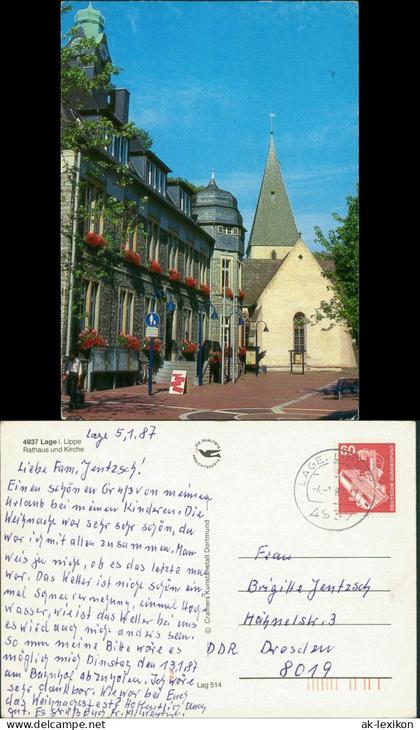 4937 Lage i. Lippe
Rathaus und Kirche
Lage 5,1.87
DIE QUALITÄTS
ANSICHTSKARTE
Liebe Fam. Jentzsch!
Einen schönen Gruß von meinen
Urlaub bei meinen Kindern. Die
Weihnacht war sehr sehr schön, da
war ich mit allen zusammen. Man
weis ja nicht, ob es das letzte mal
war. Das Wetter ist nicht schön ein
mal Schneeverwehung, einmal Hoch
wasser, wie ist das Wetter bei uns
es wird auch nicht anders sein.
So nun meine Bitte wäre es
möglich mich Dinstag den 13.1.87
am Bahnhof abzuholen. Ich wäre
sehr dankbar. Wie war bei Euch
das Weihnachtsfest? Hoffentlich auch
gut. Es grüßt Euch Fr.
© Cramers Kunstanstalt Dortmund
Lag 514
60
DEUTSCHE BUNDESPOST
LAGE, LIPPE
4937
Frau
Brigitte Jentzsch
Hähnelstr. 3
DDR Dresden
8019
ak-lexikon.de